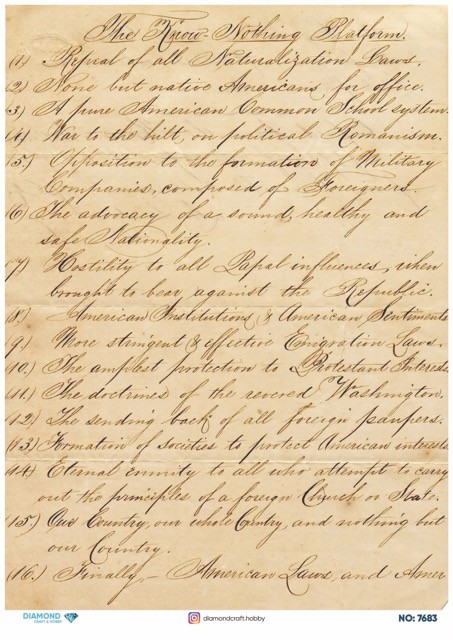 The Know-Nothing Platform.
(1) Repeal of all Naturalization Laws.
(2) None but native Americans for office.
(3) A pure American Common School system.
(4) War to the hilt, on political Romanism.
(5) Opposition to the formation of Military
Companies, composed of Foreigners.
(6) The advocacy of a sound, healthy and
safe Nationality.
(7) Hostility to all Papal influences, when
brought to bear against the Republic.
(8.) American Institutions & American Sentiments
(9.) More stringent & effective Emigration Laws.
(10.) The amplest protection to Protestant Interests
(11.) The doctrines of the revered Washington.
(12.) The sending back of all foreign paupers.
(13.) Formation of societies to protect American interests
(14.) Eternal enmity to all who attempt to carry
out the principles of a foreign Church or State.
(15.) Our Country, our whole Country, and nothing but
our Country.
(16.) Finally,— American Laws, and Amer
DIAMOND
CRAFT & HOBBY
diamondcraft.hobby
NO: 7683